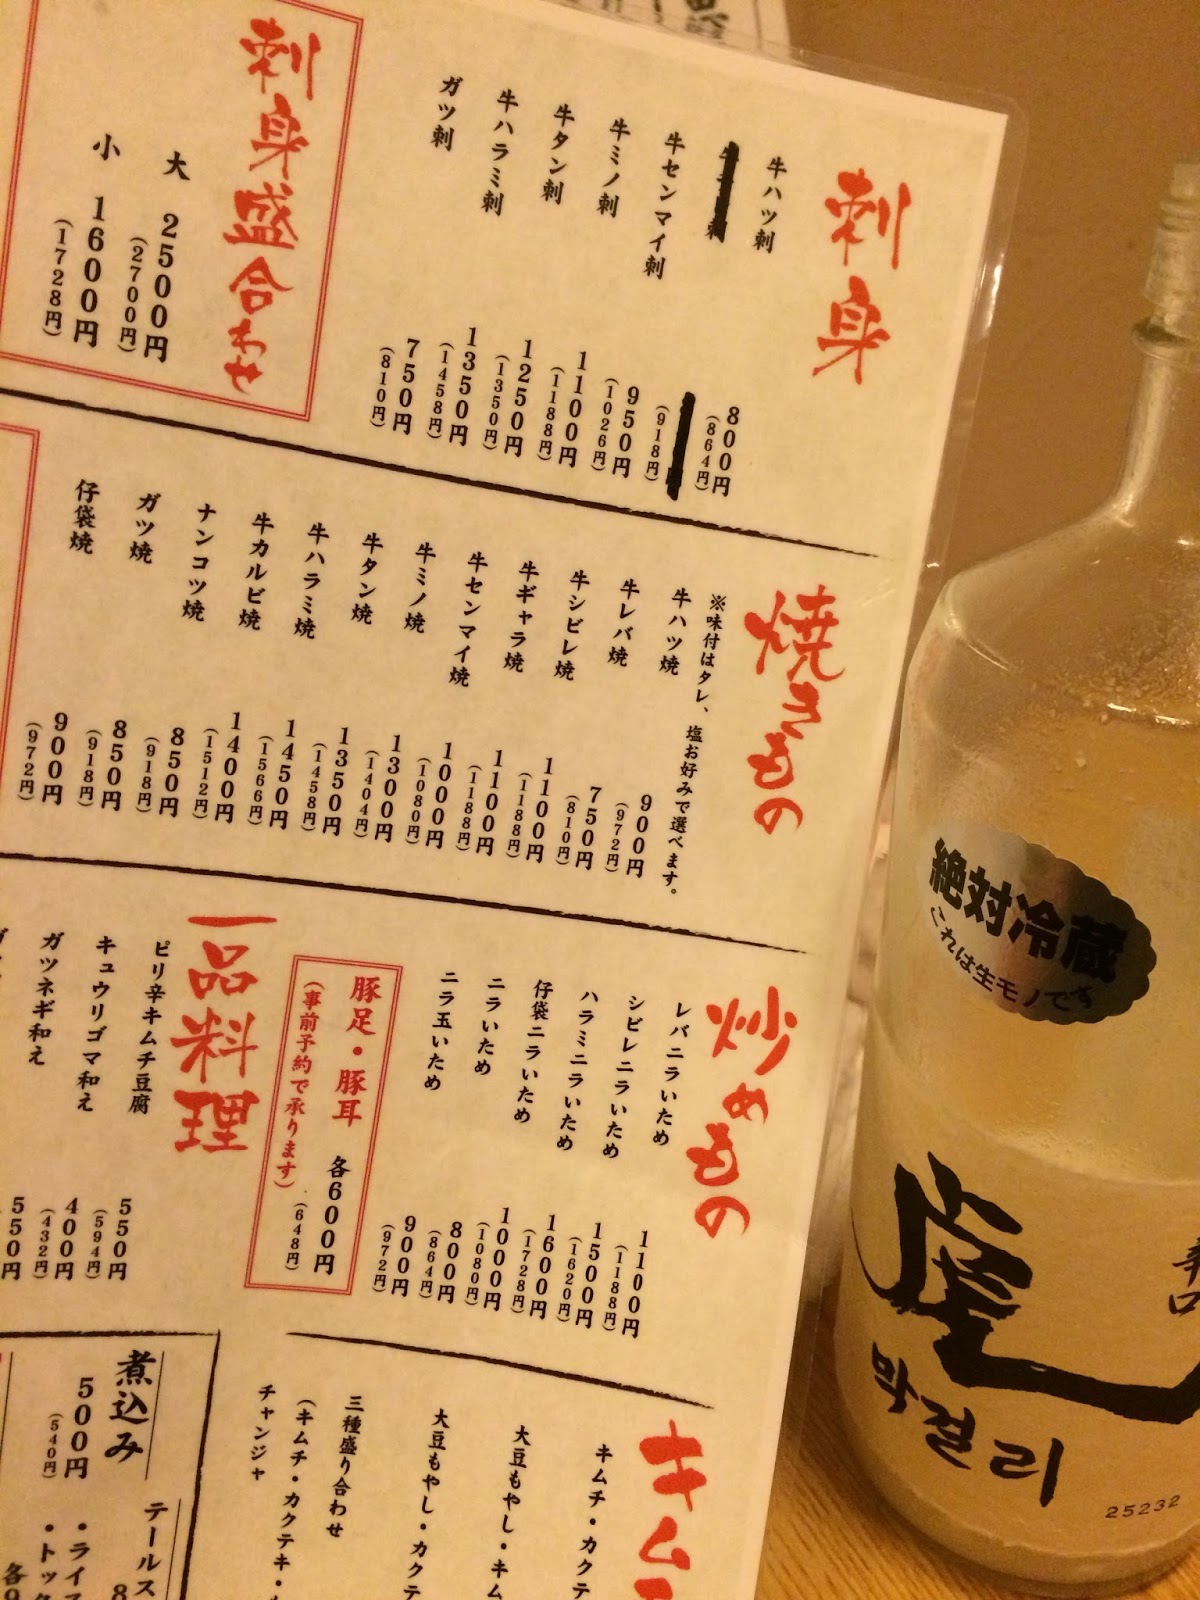 刺身
牛ハツ刺 800円
(864円)
(918円)
牛センマイ刺 950円
(1026円)
牛ミノ刺 1100円
(1188円)
牛タン刺 1250円
(1350円)
牛ハラミ刺 1350円
(1458円)
ガツ刺 750円
(810円)
刺身盛合わせ
大 2500円
(2700円)
小 1600円
(1728円)
焼きもの
※味付はタレ、塩お好みで選べます。
牛ハツ焼 900円
(972円)
牛レバ焼 750円
(810円)
牛シビレ焼 1100円
(1188円)
牛ギャラ焼 1100円
(1188円)
牛センマイ焼 1000円
(1080円)
牛ミノ焼 1300円
(1404円)
牛タン焼 1350円
(1458円)
牛ハラミ焼 1450円
(1566円)
牛カルビ焼 1400円
(1512円)
ナンコツ焼 850円
(918円)
ガツ焼 850円
(918円)
仔袋焼 900円
(972円)
炒めもの
レバニラいため 1100円
(1188円)
シビレニラいため 1500円
(1620円)
ハラミニラいため 1600円
(1728円)
仔袋ニラいため 1000円
(1080円)
ニラいため 800円
(864円)
ニラ玉いため 900円
(972円)
豚足・豚耳 各600円
(事前予約で承ります) (648円)
一品料理
ピリ辛キムチ豆腐 550円
(594円)
キュウリゴマ和え 400円
(432円)
ガツネギ和え 550円
キム
キムチ・カクテ
大豆もやし・キム
大豆もやし・カクテ
三種盛り合わせ
(キムチ・カクテキ・
チャンジャ
煮込み
500円
(540円)
テールス
・ライス
・トック
絶対冷蔵
これは生モノです
虎
辛口
막걸리
25232